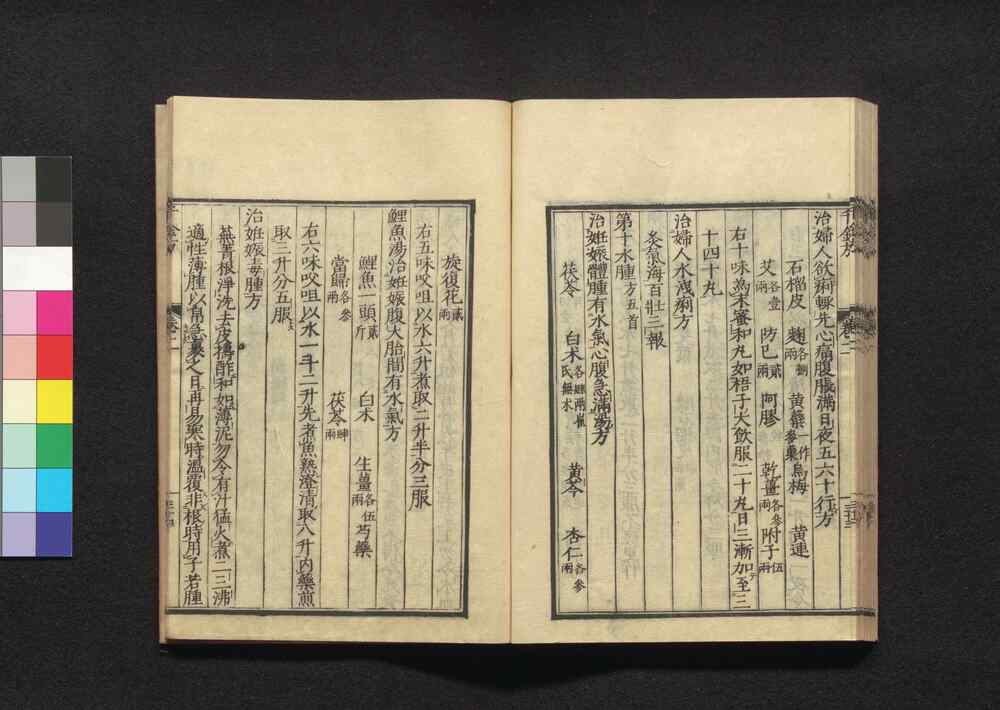 治婦人飲痢輙先心痛腹脹滿日夜五六十行方
石榴皮 麹各捌兩 黄蘗一作麥蘗 烏梅 黄連
艾各壹兩 防已貳兩 阿膠 乾薑各參兩 附子伍兩
右十味為末蜜和丸如梧子大飲服二十丸日三漸加至三
十四十丸
治婦人水洩痢方
灸氣海百壯三報
第十水腫方五首
治妊娠體腫有水氣心腹急滿湯方
茯苓 白术各肆兩崔氏無术 黄芩 杏仁各參兩
旋復花貳兩
右五味㕮咀以水六升煮取二升半分三服
鯉魚湯治妊娠腹大胎間有水氣方
鯉魚一頭貳斤 白术 生薑各伍兩 芍藥
當歸各參兩 茯苓肆兩
右六味㕮咀以水一斗二升先煮魚熟澄清取八升内藥煎
取三升分五服
治妊娠毒腫方
蕪菁根淨洗去皮擣酢和如薄泥勿令有汁猛火煮二三沸
適性薄腫以帛急裹之日再易寒時溫覆非根時用子若腫